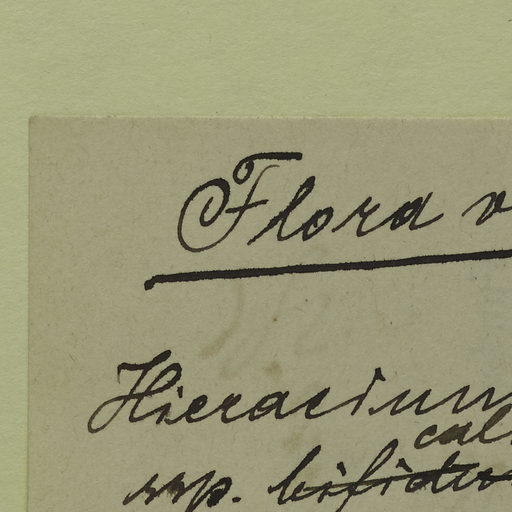 Flora v
Hieracium
cal
ssp. bifidu